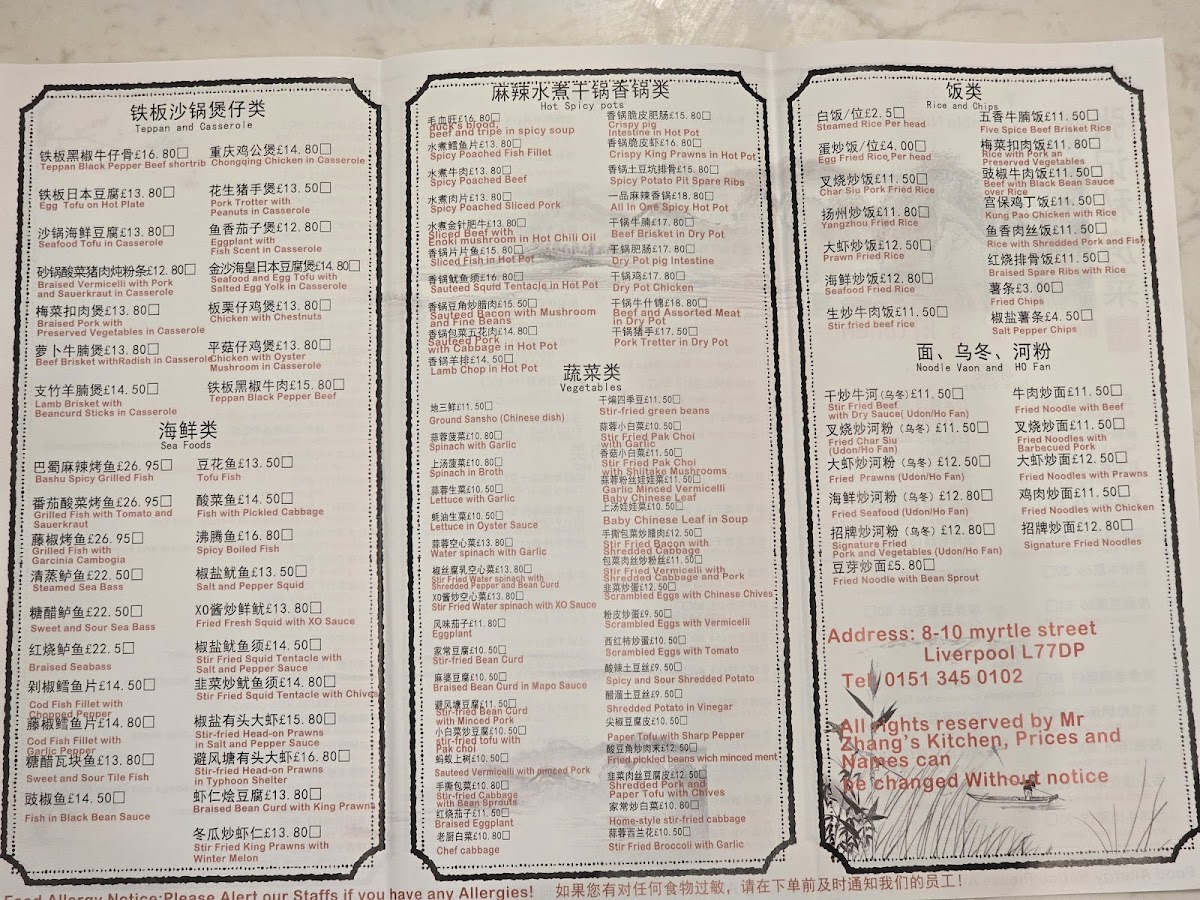 铁板沙锅煲仔类
Teppan and Casserole
铁板黑椒牛仔骨£16.80□
Teppan Black Pepper Beef shortrib
铁板日本豆腐£13.80□
Egg Tofu on Hot Plate
沙锅海鲜豆腐£13.80□
Seafood Tofu in Casserole
砂锅酸菜猪肉炖粉条£12.80□
Braised Vermicelli with Pork
and Sauerkraut in Casserole
梅菜扣肉煲£13.80□
Braised Pork with
Preserved Vegetables in Casserole
萝卜牛腩煲£13.80□
Beef Brisket withRadish in Casserole
支竹羊腩煲£14.50□
Lamb Brisket with
Beancurd Sticks in Casserole
重庆鸡公煲£14.80□
Chongqing Chicken in Casserole
花生猪手煲£13.50□
Pork Trotter with
Peanuts in Casserole
鱼香茄子煲£12.80□
Eggplant with
Fish Scent in Casserole
金沙海皇日本豆腐煲£14.80□
Seafood and Egg Tofu with
Salted Egg Yolk in Casserole
板栗仔鸡煲£13.80□
Chicken with Chestnuts
平菇仔鸡煲£13.80□
Chicken with Oyster
Mushroom in Casserole
铁板黑椒牛肉£15.80□
Teppan Black Pepper Beef
海鲜类
Sea Foods
巴蜀麻辣烤鱼£26.95□
Bashu Spicy Grilled Fish
番茄酸菜烤鱼£26.95□
Grilled Fish with Tomato and
Sauerkraut
藤椒烤鱼£26.95□
Grilled Fish with
Garcinia Cambogia
清蒸鲈鱼£22.50□
Steamed Sea Bass
糖醋鲈鱼£22.50□
Sweet and Sour Sea Bass
红烧鲈鱼£22.5□
Braised Seabass
剁椒鳕鱼片£14.50□
Cod Fish Fillet with
Chopped Pepper
藤椒鳕鱼片£14.80□
Cod Fish Fillet with
Garlic Pepper
糖醋瓦块鱼£13.80□
Sweet and Sour Tile Fish
豉椒鱼£14.50□
Fish in Black Bean Sauce
豆花鱼£13.50□
Tofu Fish
酸菜鱼£14.50□
Fish with Pickled Cabbage
沸腾鱼£16.80□
Spicy Boiled Fish
椒盐鱿鱼£13.50□
Salt and Pepper Squid
XO酱炒鲜鱿£13.80□
Fried Fresh Squid with XO Sauce
椒盐鱿鱼须£14.50□
Stir Fried Squid Tentacle with
Salt and Pepper Sauce
韭菜炒鱿鱼须£14.80□
Stir Fried Squid Tentacle with Chives
椒盐有头大虾£15.80□
Stir-fried Head-on Prawns
in Salt and Pepper Sauce
避风塘有头大虾£16.80□
Stir-fried Head-on Prawns
in Typhoon Shelter
虾仁烩豆腐£13.80□
Braised Bean Curd with King Prawns
冬瓜炒虾仁£13.80□
Stir Fried King Prawns with
Winter Melon
麻辣水煮干锅香锅类
Hot Spicy pots
毛血旺£16.80□
duck's blood,
beef and tripe in spicy soup
水煮鳕鱼片£13.80□
Spicy Poached Fish Fillet
水煮牛肉£13.80□
Spicy Poached Beef
水煮肉片£13.80□
Spicy Poached Sliced Pork
水煮金针肥牛£13.80□
Sliced Beef with
Enoki mushroom in Hot Chili Oil
香锅鱼片£15.80□
Sliced Fish in Hot Pot
香锅鱿鱼须£16.80□
Sauteed Squid Tentacle in Hot Pot
香锅豆角炒腊肉£15.50□
Sauteed Bacon with Mushroom
and Fine Beans
香锅包菜五花肉£14.80□
Sauteed Pork
with Cabbage in Hot Pot
香锅羊排£14.50□
Lamb Chop in Hot Pot
香锅脆皮肥肠£15.80□
Crispy pig
Intestine in Hot Pot
香锅脆皮虾£16.80□
Crispy King Prawns in Hot Pot
香锅土豆坑排骨£15.80□
Spicy Potato Pit Spare Ribs
一品麻辣香锅£18.80□
All In One Spicy Hot Pot
干锅牛腩£17.80□
Beef Brisket in Dry Pot
干锅肥肠£17.80□
Dry Pot pig Intestine
干锅鸡£17.80□
Dry Pot Chicken
干锅牛什锦£18.80□
Beef and Assorted Meat
in Dry Pot
干锅猪手£17.50□
Pork Tretter in Dry Pot
蔬菜类
Vegetables
地三鲜£11.50□
Ground Sansho (Chinese dish)
蒜蓉菠菜£10.80□
Spinach with Garlic
上汤菠菜£10.80□
Spinach in Broth
蒜蓉生菜£10.50□
Lettuce with Garlic
蚝油生菜£10.50□
Lettuce in Oyster Sauce
蒜蓉空心菜£13.80□
Water spinach with Garlic
椒丝腐乳空心菜£13.80□
Stir Fried Water spinach with
Shredded Pepper and Bean Curd
XO酱炒空心菜£13.80□
Stir Fried Water spinach with XO Sauce
风味茄子£11.80□
Eggplant
家常豆腐£10.50□
Stir-fried Bean Curd
麻婆豆腐£10.50□
Braised Bean Curd in Mapo Sauce
避风塘豆腐£11.50□
Stir-fried Bean Curd
with Minced Pork
小白菜炒豆腐£10.50□
stir-fried tofu with
Pak choi
蚂蚁上树£10.50□
Sauteed Vermicelli with minced Pork
手撕包菜£10.80□
Stir-fried Cabbage
with Bean Sprouts
红烧茄子£11.50□
Braised Eggplant
老厨白菜£10.80□
Chef cabbage
干煸四季豆£11.50□
Stir-fried green beans
蒜蓉小白菜£10.50□
Stir Fried Pak Choi
with Garlic
香菇小白菜£11.50□
Stir Fried Pak Choi
with Shiitake Mushrooms
蒜蓉粉丝娃娃菜£11.50□
Garlic Minced Vermicelli
Baby Chinese Leaf
上汤娃娃菜£10.50□
Baby Chinese Leaf in Soup
手撕包菜炒腊肉£12.50□
Stir Fried Bacon with
Shredded Cabbage
包菜肉丝炒粉丝£11.50□
Stir Fried Vermicelli with
Shredded Cabbage and Pork
韭菜炒蛋£12.50□
Scrambled Eggs with Chinese Chives
粉皮炒蛋£9.50□
Scrambled Eggs with Vermicelli
西红柿炒蛋£10.50□
Scrambled Eggs with Tomato
酸辣土豆丝£9.50□
Spicy and Sour Shredded Potato
醋溜土豆丝£9.50□
Shredded Potato in Vinegar
尖椒豆腐皮£10.50□
Paper Tofu with Sharp Pepper
酸豆角炒肉末£12.50□
Fried pickled beans wich minced ment
韭菜肉丝豆腐皮£12.50□
Shredded Pork and
Paper Tofu with Chives
家常炒白菜£10.80□
Home-style stir-fried cabbage
蒜蓉西兰花£10.50□
Stir Fried Broccoli with Garlic
饭类
Rice and Chips
白饭/位£2.5□
Steamed Rice Per head
蛋炒饭/位£4.00□
Egg Fried Rice,Per head
叉烧炒饭£11.50□
Char Siu Pork Fried Rice
扬州炒饭£11.80□
Yangzhou Fried Rice
大虾炒饭£12.50□
Prawn Fried Rice
海鲜炒饭£12.80□
Seafood Fried Rice
生炒牛肉饭£11.50□
Stir fried beef rice
五香牛腩饭£11.50□
Five Spice Beef Brisket Rice
梅菜扣肉饭£11.50□
Rice with Pork an
Preserved Vegetables
豉椒牛肉饭£11.50□
Beef with Black Bean Sauce
over Rice
宫保鸡丁饭£11.50□
Kung Pao Chicken with Rice
鱼香肉丝饭£11.50□
Rice with Shredded Pork and Fish
红烧排骨饭£11.50□
Braised Spare Ribs with Rice
薯条£3.00□
Fried Chips
椒盐薯条£4.50□
Salt Pepper Chips
面、乌冬、河粉
Noodle Vaon and HO Fan
干炒牛河(乌冬)£11.50□
Stir Fried Beef
with Dry Sauce( Udon/Ho Fan)
叉烧炒河粉(乌冬)£11.50□
Fried Char Siu
(Udon/Ho Fan)
大虾炒河粉(乌冬)£12.50□
Fried Prawns (Udon/Ho Fan)
海鲜炒河粉(乌冬)£12.80□
Fried Seafood (Udon/Ho Fan)
招牌炒河粉(乌冬)£12.80□
Signature Fried
Pork and Vegetables (Udon/Ho Fan)
豆芽炒面£5.80□
Fried Noodle with Bean Sprout
牛肉炒面£11.50□
Fried Noodle with Beef
叉烧炒面£11.50□
Fried Noodles with
Barbecued Pork
大虾炒面£12.50□
Fried Noodles with Prawns
鸡肉炒面£11.50□
Fried Noodles with Chicken
招牌炒面£12.80□
Signature Fried Noodles
Address: 8-10 myrtle street
Liverpool L77DP
Tel: 0151 345 0102
All rights reserved by Mr
Zhang's Kitchen, Prices and
Names can
be changed Without notice
Food Allergy Notice:Please Alert our Staffs if you have any Allergies! 如果您有对任何食物过敏，请在下单前及时通知我们的员工！